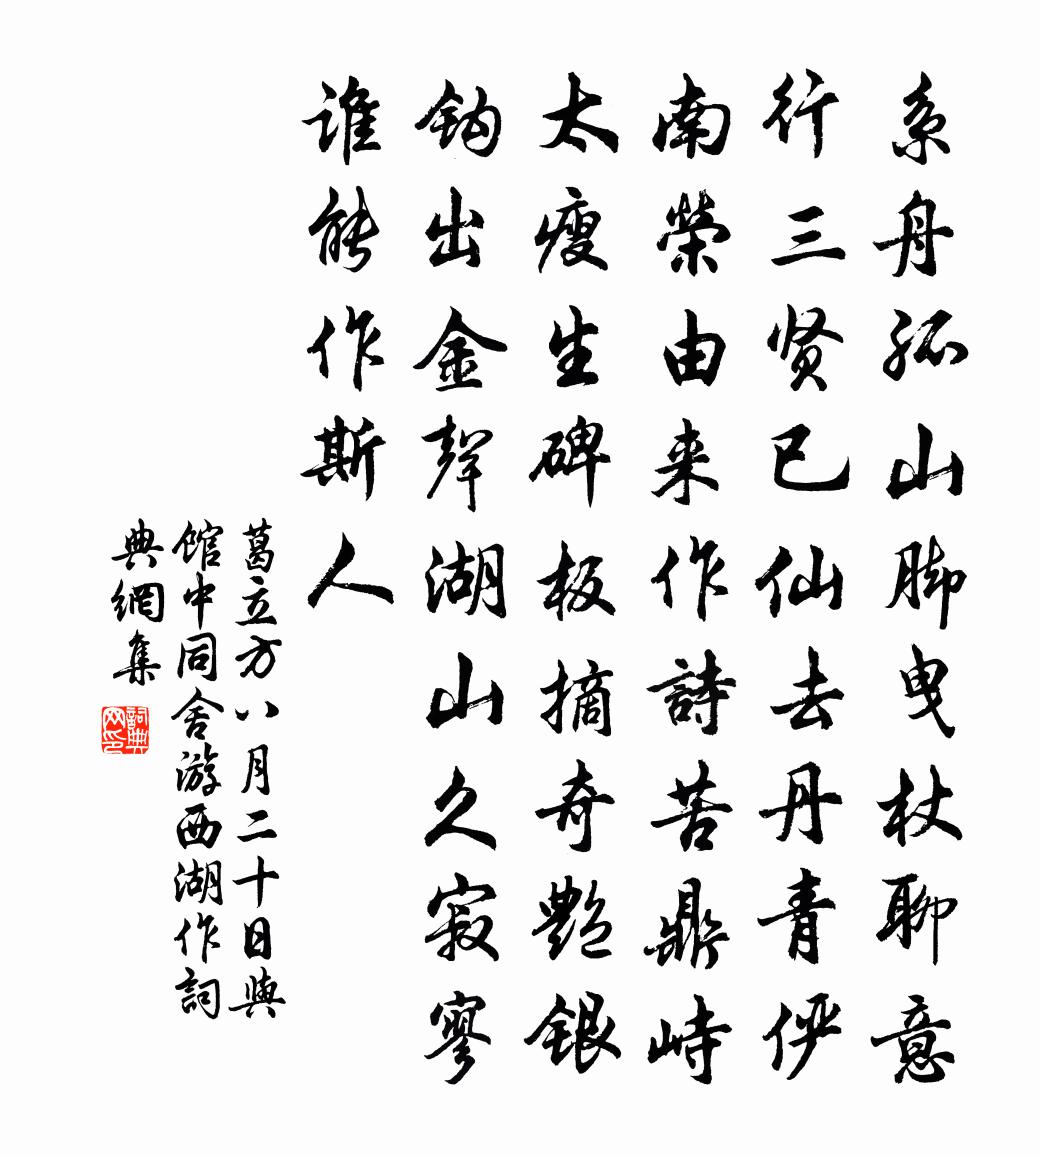 系舟孤山脚曳杖聊意
行三贤已仙去丹青俨
南榮由来作詩苦鼎峙
太瘦生碑板摘奇艷銀
鈎出金聲湖山久寂寥
谁能作斯人
葛立方八月二十日與
馆中同舍游西湖作詞
典網集
詞典网印